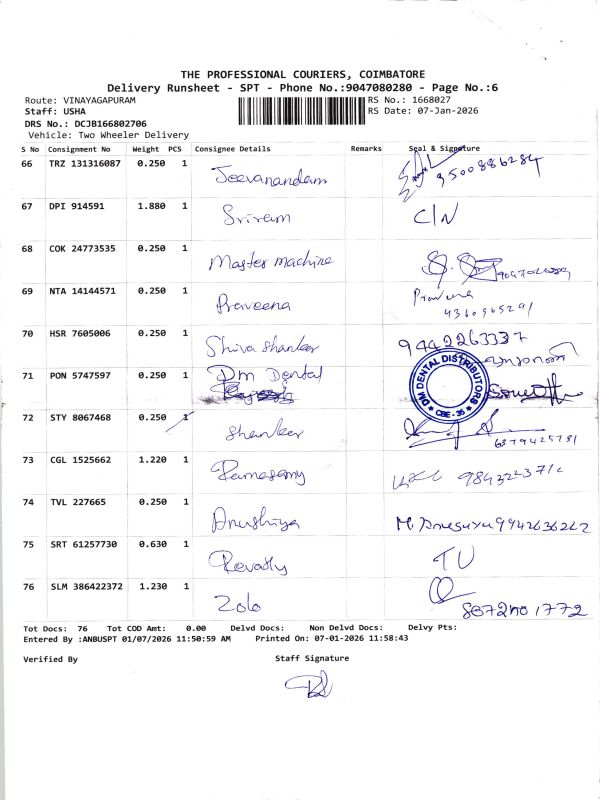 THE PROFESSIONAL COURIERS, COIMBATORE
Delivery Runsheet - SPT - Phone No.:9047080280 - Page No.:6
Route: VINAYAGAPURAM RS No.: 1668027
Staff: USHA RS Date: 07-Jan-2026
DRS No.: DCJB166802706
Vehicle: Two Wheeler Delivery
S No Consignment No Weight PCS Consignee Details Remarks Seal & Signature
66 TRZ 131316087 0.250 1 Jeevanandam 9500886284
67 DPI 914591 1.880 1 Sriram C/N
68 COK 24773535 0.250 1 Master machine
69 NTA 14144571 0.250 1 Praveena
70 HSR 7605006 0.250 1 Shiva Shanker 9442263337
71 PON 5747597 0.250 1 Dm Dental
DM DENTAL DISTRIBUTORS
CBE - 35
72 STY 8067468 0.250 1 Shanker 6379425731
73 CGL 1525662 1.220 1 Ramasamy
74 TVL 227665 0.250 1 Anushiya 9942636262
75 SRT 61257730 0.630 1 Revathy TU
76 SLM 386422372 1.230 1 Zolo
Tot Docs: 76 Tot COD Amt: 0.00 Delvd Docs: Non Delvd Docs: Delvy Pts:
Entered By :ANBUSPT 01/07/2026 11:50:59 AM Printed On: 07-01-2026 11:58:43
Verified By Staff Signature